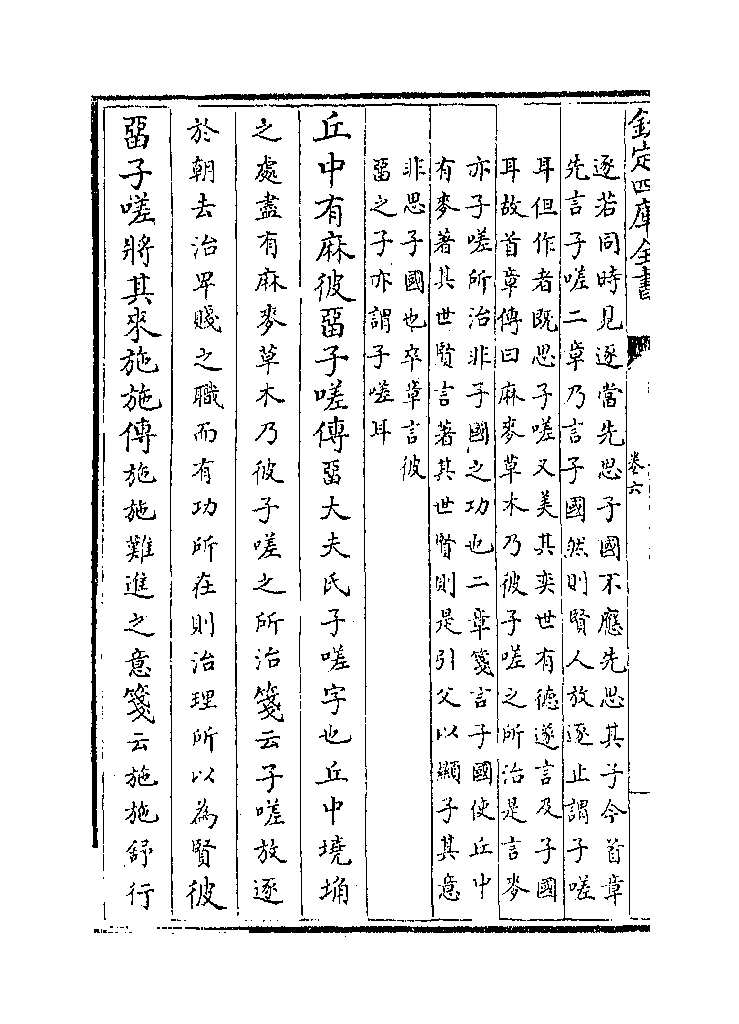 欽定四庫全書
卷六
逐若同時見逐當先思子國不應先思其子今首章
先言子嗟二章乃言子國然則賢人放逐止謂子嗟
耳但作者既思子嗟又美其奕世有德遂言及子國
耳故首章傳曰麻麥草木乃彼子嗟之所治是言麥
亦子嗟所治非子國之功也二章箋言子國使丘中
有麥著其世賢言著其世賢則是引父以顯子其意
非思子國也卒章言彼
畱之子亦謂子嗟耳
丘中有麻彼畱子嗟傳畱大夫氏子嗟字也丘中墝埆
之處盡有麻麥草木乃彼子嗟之所治箋云子嗟放逐
於朝去治卑賤之職而有功所在則治理所以為賢彼
畱子嗟將其來施施傳施施難進之意箋云施施舒行